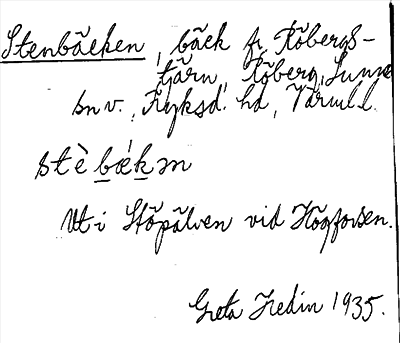 Stenbäcken, bäck fr. Röbergs-
tjärn, Röberg, Sunne
sn v., Fryksd. hd, Värml.
stè bǽkm
Ut i Stöpälven vid Högforsen.
Greta Hedin 1935.